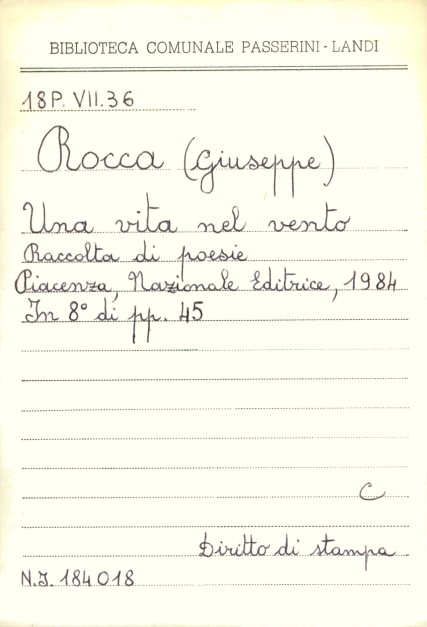 BIBLIOTECA COMUNALE PASSERINI-LANDI
18P. VII.36
Rocca (Giuseppe)
Una vita nel vento
Raccolta di poesie
Piacenza, Nazionale Editrice, 1984
In 8° di pp. 45
C
Diritto di stampa
N.I. 184018